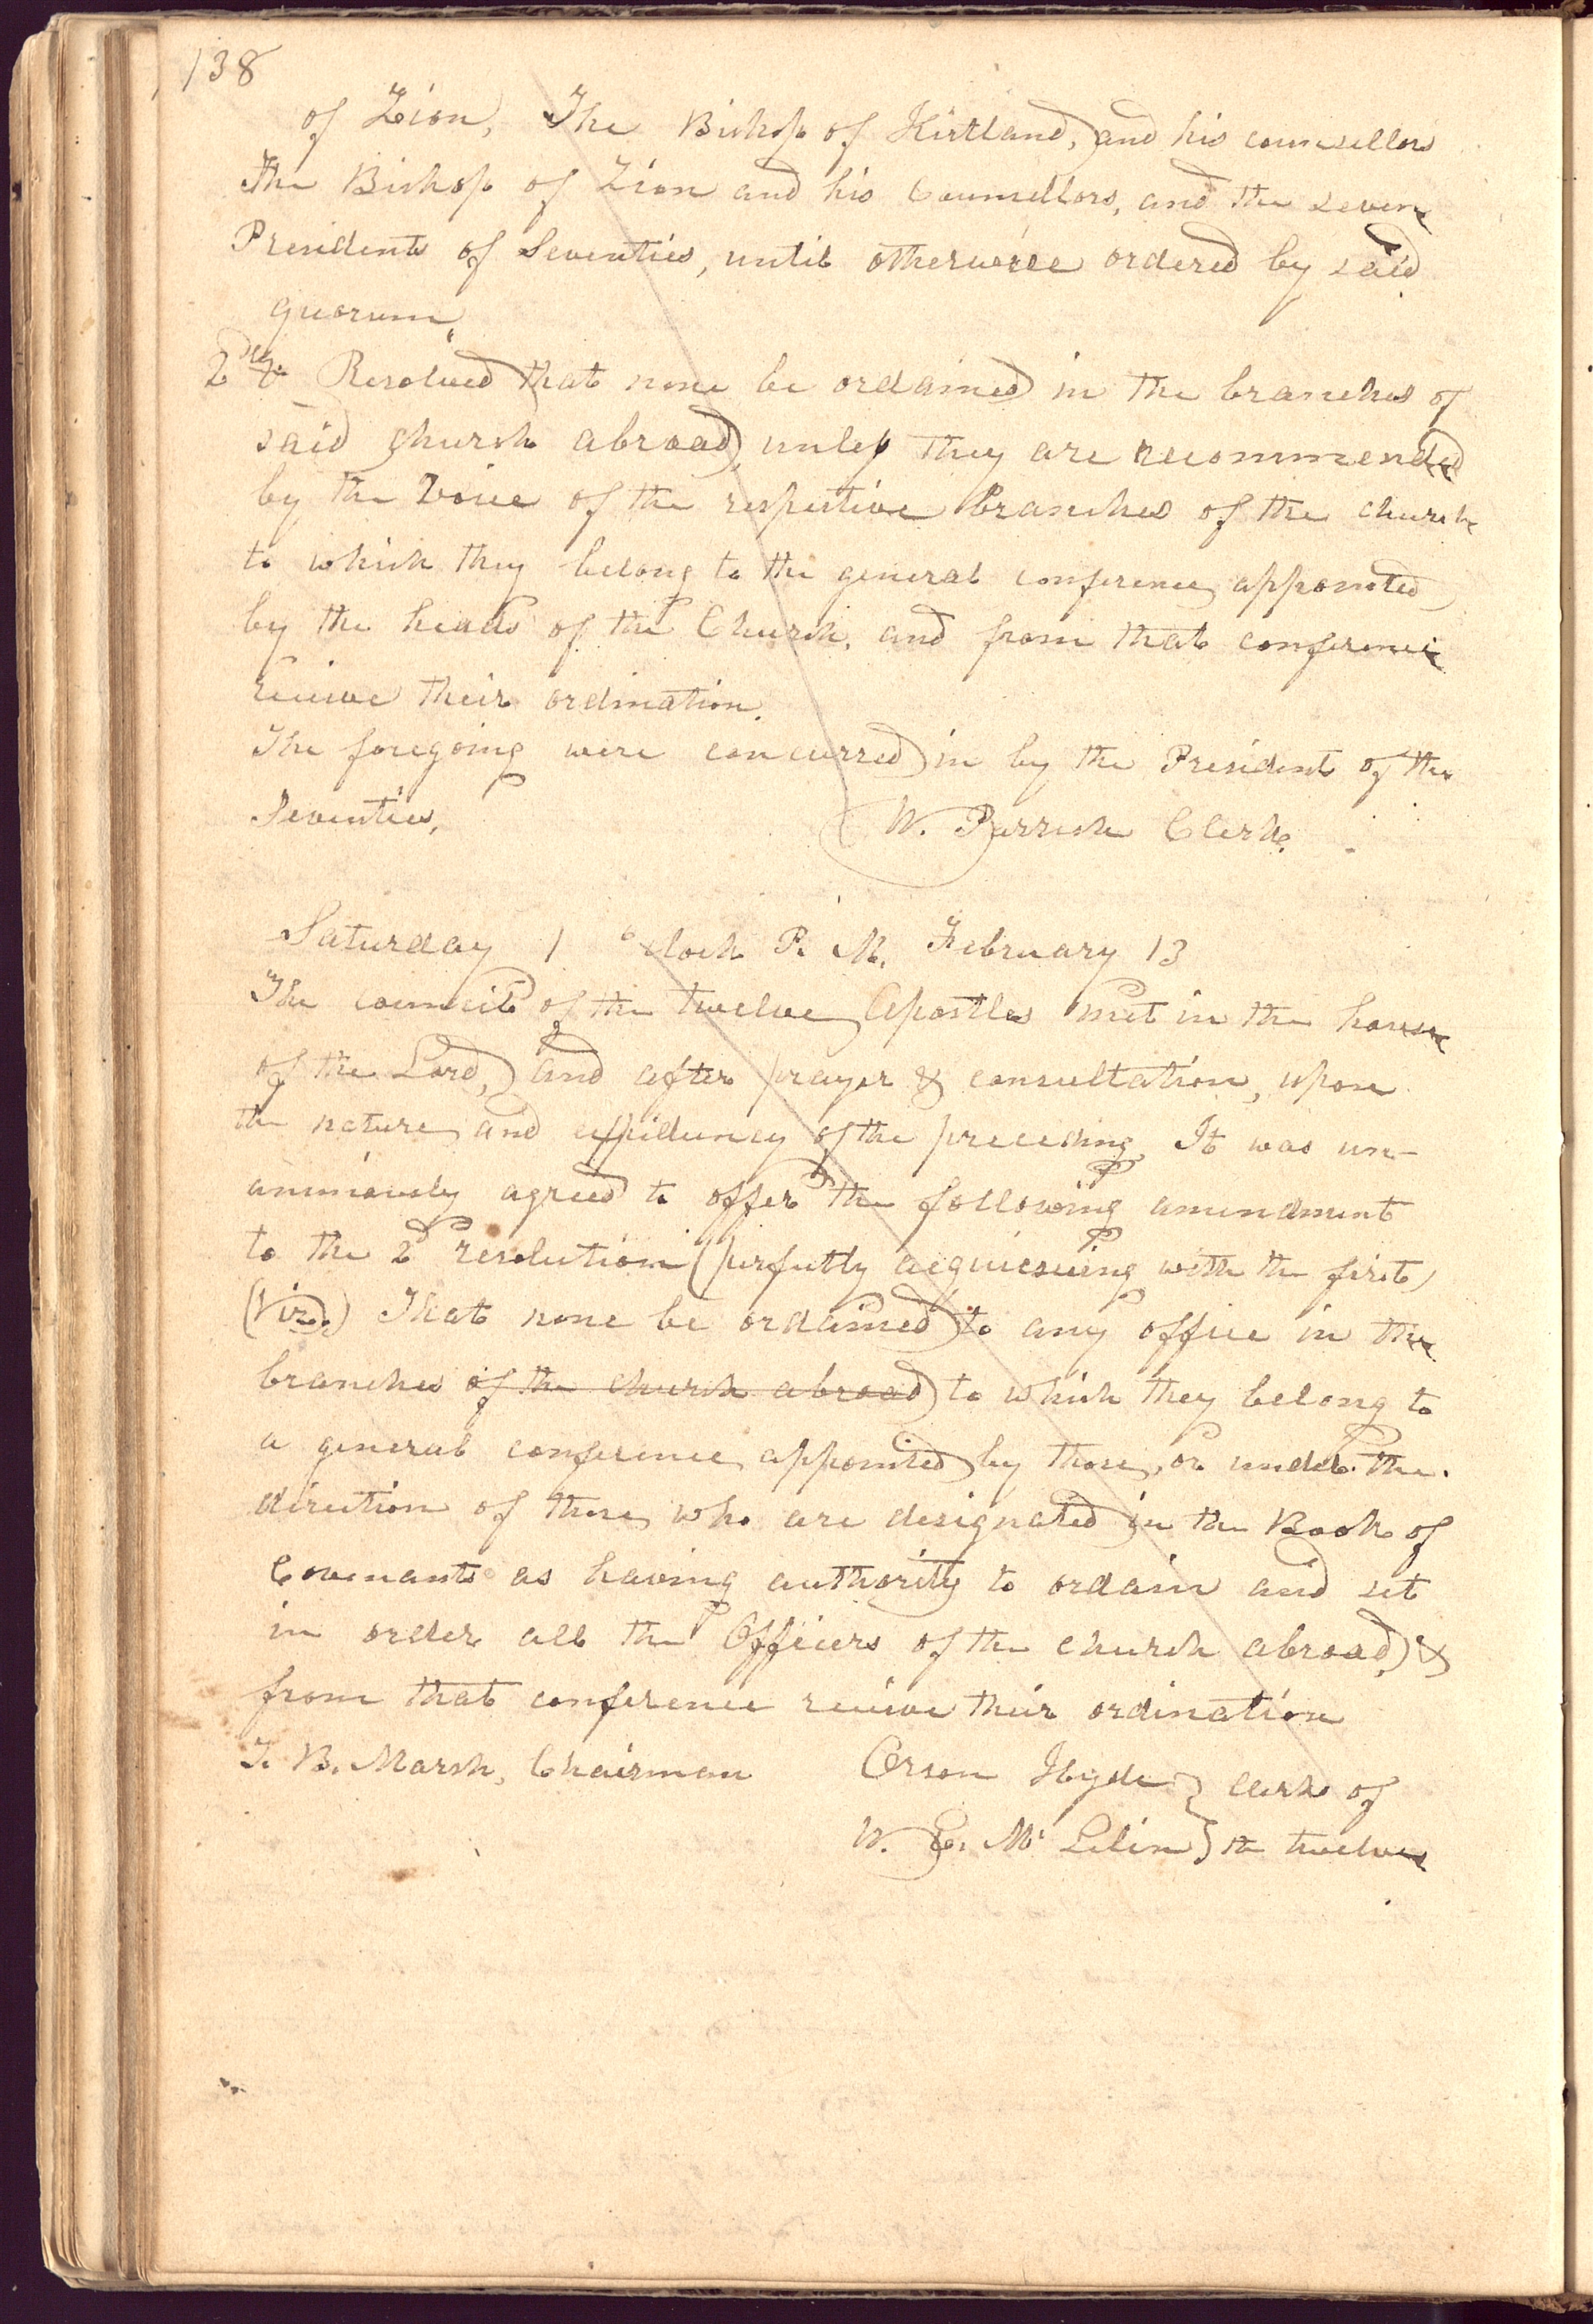 138
of Zion, The Bishop of Kirtland, and his counsellors
The Bishop of Zion and his Counsellors, and the seven
Presidents of Seventies, until otherwise ordered by said
quorum,
2dly Resolved that none be ordained in the branches of
said church abroad, unless they are recommended
by the Voice of the respective branches of the church
to which they belong to the general conference appointed
by the heads of the Church, and from that conference
receive their ordination.
The foregoing were concurred in by the President of the
Seventies,
W. Parrish Clerk.
Saturday 1 oclock P. M. February 13
The council of the twelve Apostles met in the house
of the Lord, and after prayer & consultation, upon
the nature and expediency of the preceding. It was un-
animously agreed to offer the following amendment
to the 2d resolution (perfectly acquiescing with the first)
(viz.) That none be ordained to any office in the
branches of the church abroad to which they belong to
a general conference appointed by those, or under the
direction of those who are designated in the Book of
Covenants as having authority to ordain and set
in order all the Officers of the church abroad, &
from that conference receive their ordination
T. B. Marsh, Chairman
Orson Hyde } clerks of
W. E. Mc Lelin } the twelve